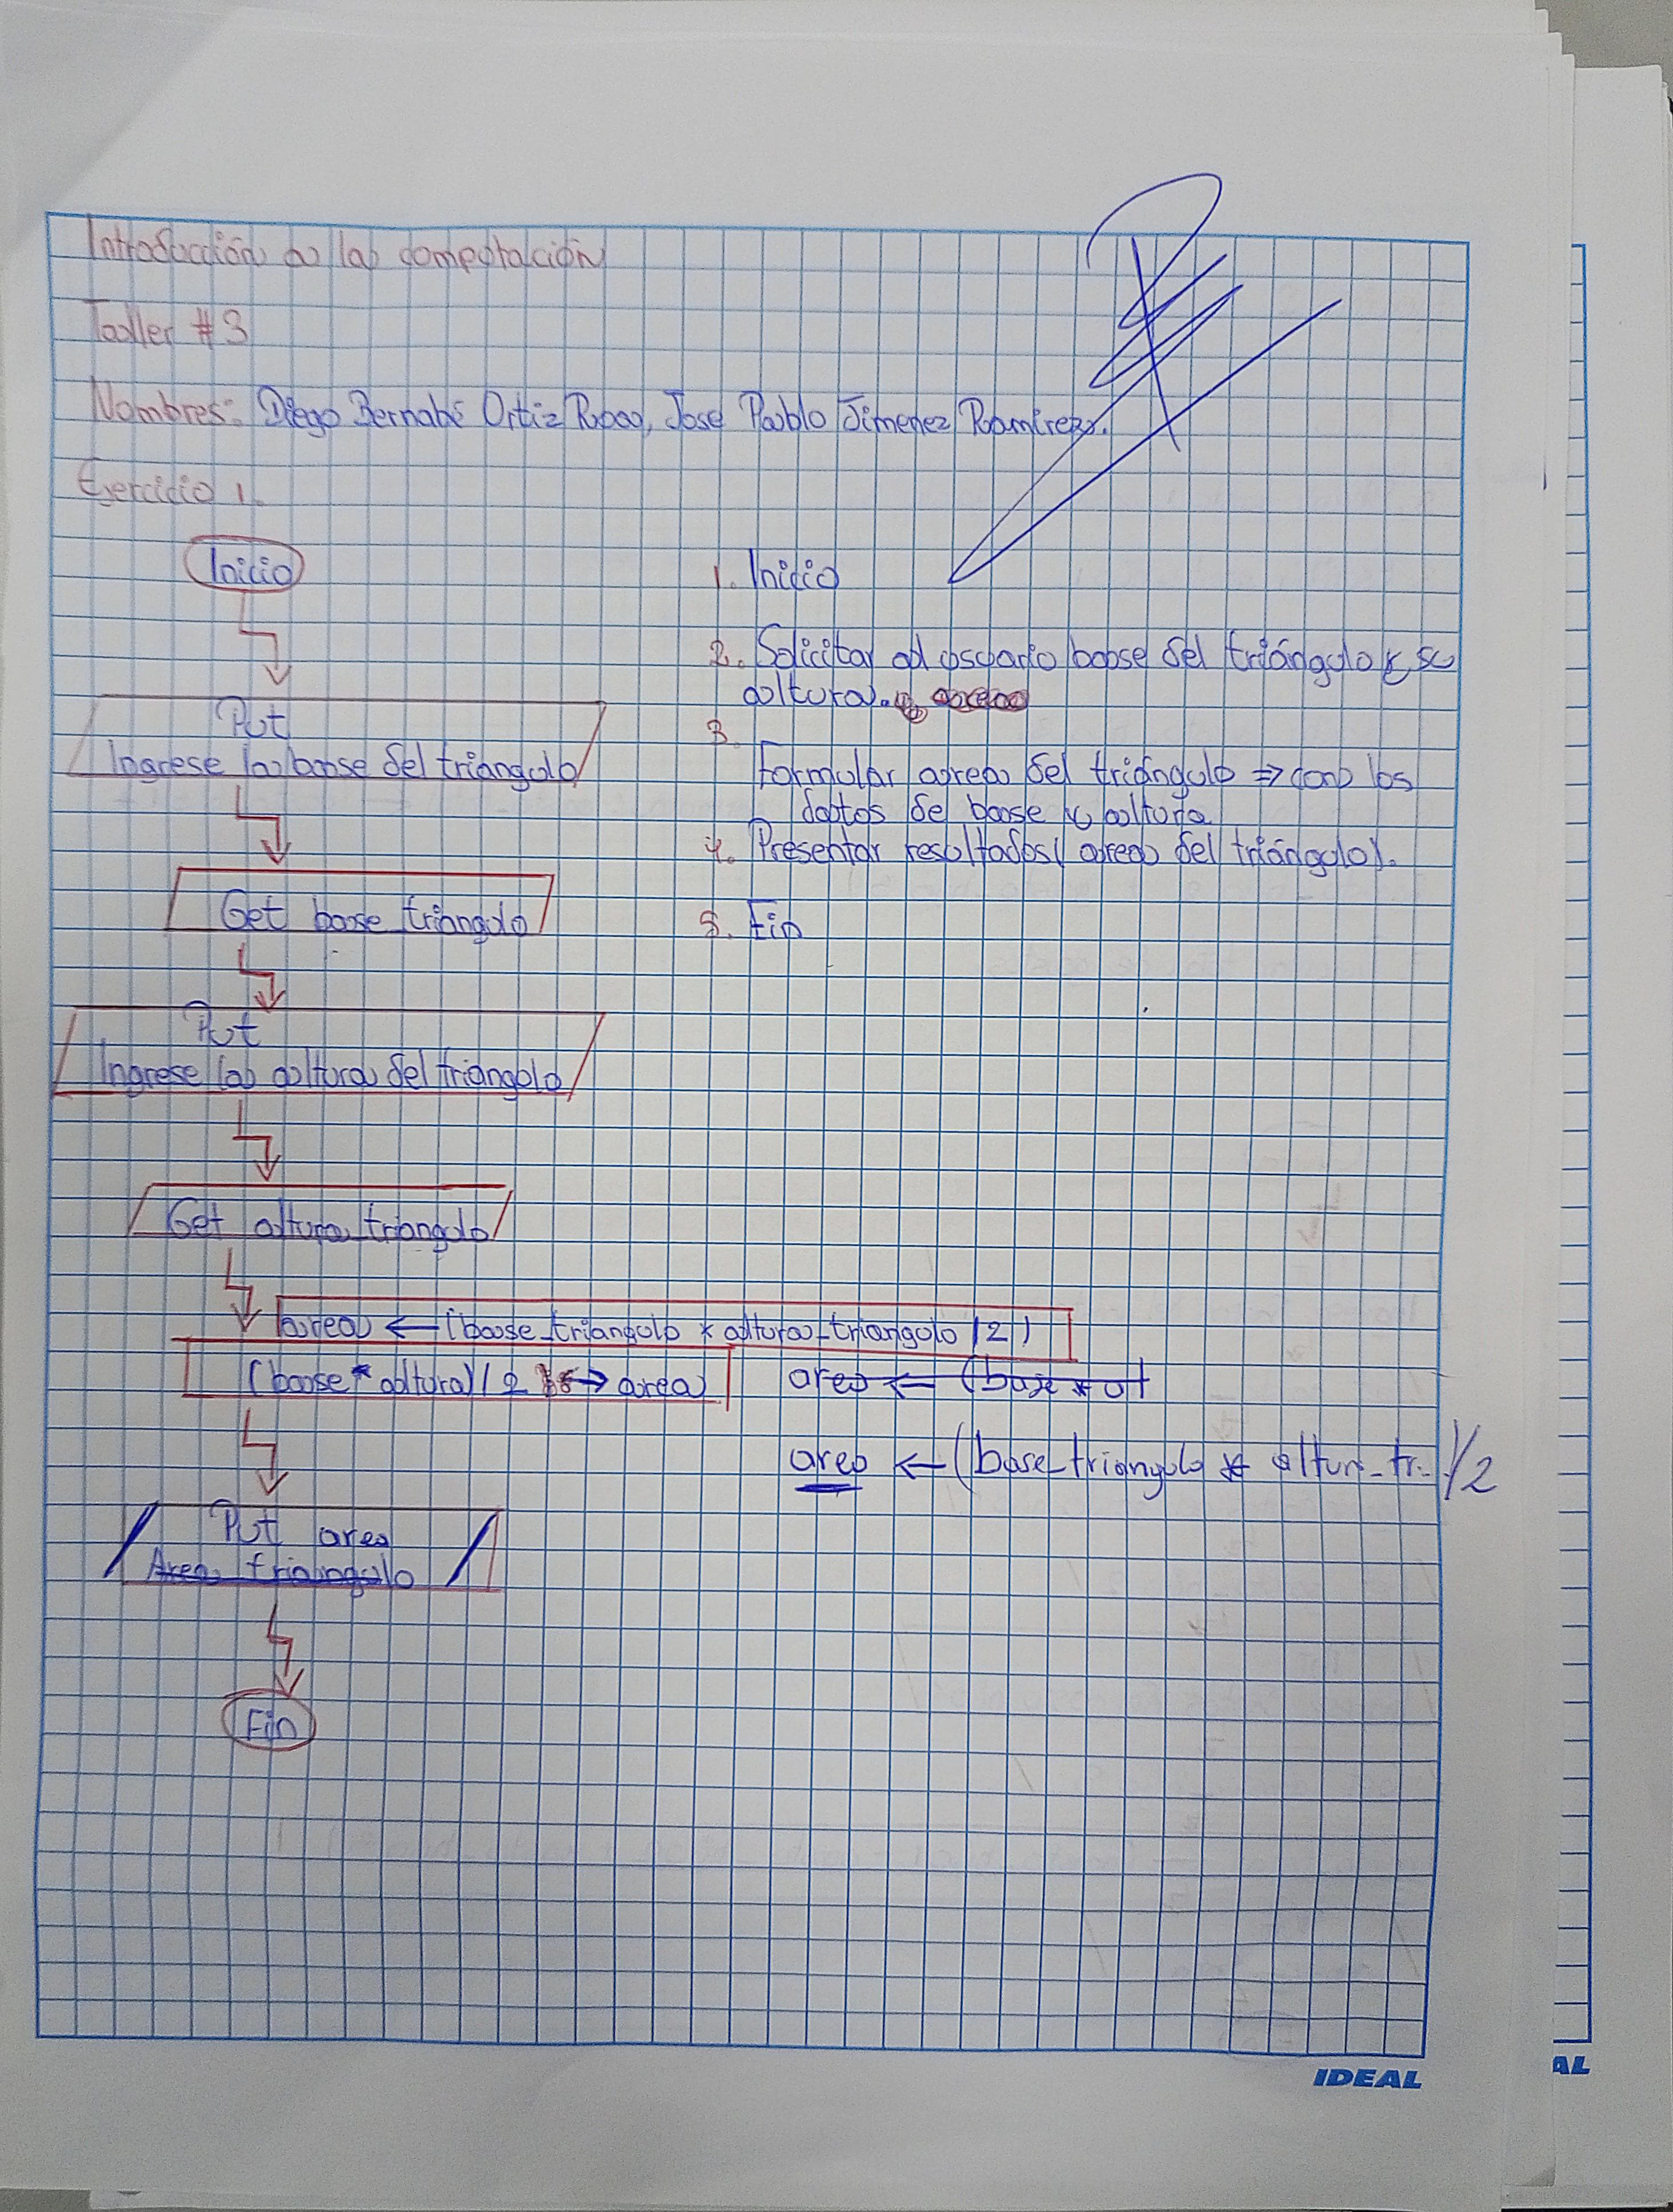 Introducción a la computación
Taller #3
Nombres: Diego Bernabé Ortiz, Jose Pablo Jimenez Ramirez.
Ejercicio 1.
Inicio
Put
Ingrese la base del triangulo
Get base_triangulo
Put
Ingrese la altura del triangulo
Get altura_triangulo
area ← (base_triangulo * altura_triangulo /2)
(base * altura) / 2 → area
Put area
Area triangulo
Fin
1. Inicio
2. Solicitar al usuario base del triángulo y su
altura.
3.
Formular area del triángulo ⇒ con los
datos de base y altura
4. Presentar resultados (area del triángulo).
5. Fin
area ← (base * alt
area ← (base_triangulo * altura_tr.)/2
IDEAL
AL